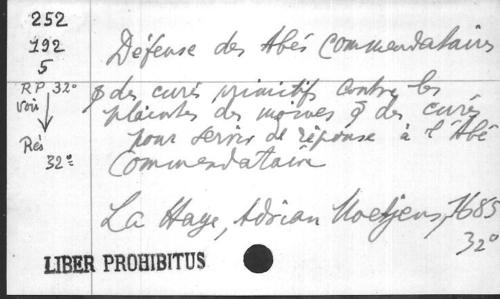 252
192
5
RP 32°
voir
Rés
32°
Défense des Abés Commendataires
& des curés primitifs contre les
plaintes des moines & des curés
pour servir de réponse à l'Abé
Commendataire
La Haye, Adrian Moetjens, 1685
32°
LIBER PROHIBITUS